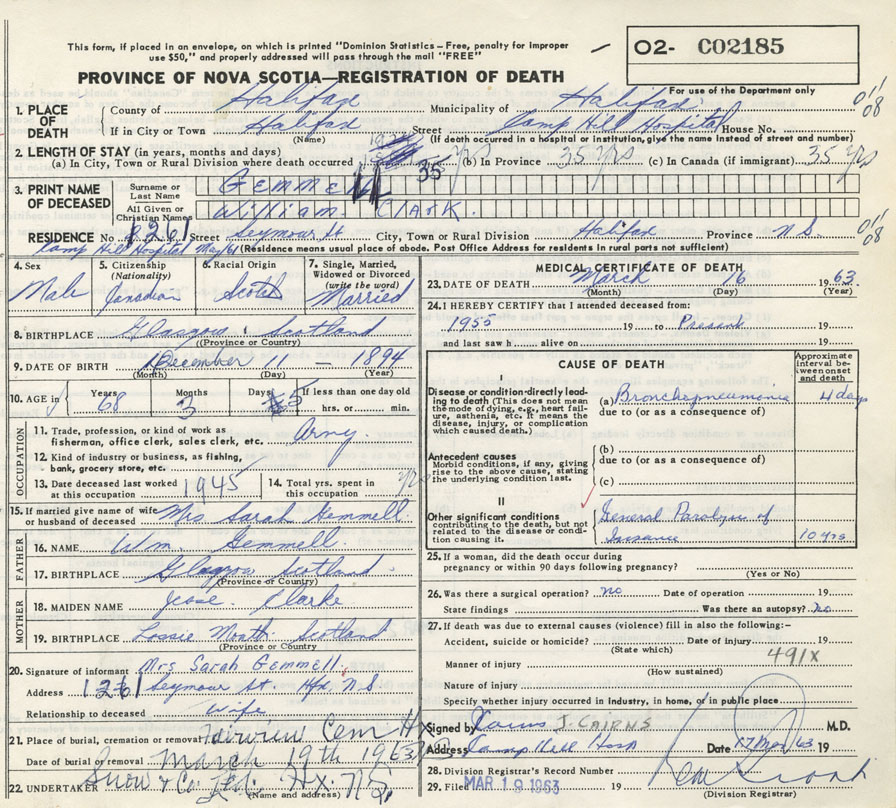 This form, if placed in an envelope, on which is printed "Dominion Statistics – Free, penalty for improper
use $50," and properly addressed will pass through the mail "FREE"
PROVINCE OF NOVA SCOTIA—REGISTRATION OF DEATH
O2- C02185
For use of the Department only
1. PLACE OF DEATH
County of Halifax Municipality of Halifax
If in City or Town Halifax Street Camp Hill Hospital House No.
(Name) (If death occurred in a hospital or institution, give the name instead of street and number)
2. LENGTH OF STAY (in years, months and days)
(a) In City, Town or Rural Division where death occurred 35 yrs (b) In Province 35 yrs (c) In Canada (if immigrant) 35 yrs
3. PRINT NAME OF DECEASED
Surname or Last Name GEMMELL
All Given or Christian Names William CLARK.
RESIDENCE No. 1261 Street Seymour St City, Town or Rural Division Halifax Province N.S.
Camp Hill Hospital May/61 (Residence means usual place of abode. Post Office Address for residents in rural parts not sufficient)
011/08
011/08
4. Sex Male
5. Citizenship (Nationality) Canadian
6. Racial Origin Scotch
7. Single, Married, Widowed or Divorced (write the word) Married
8. BIRTHPLACE Glasgow, Scotland
(Province or Country)
9. DATE OF BIRTH December 11 – 1894
(Month) (Day) (Year)
10. AGE in Years 68 Months 3 Days 5 If less than one day old hrs. or min.
OCCUPATION
11. Trade, profession, or kind of work as fisherman, office clerk, sales clerk, etc. Army.
12. Kind of industry or business, as fishing, bank, grocery store, etc.
13. Date deceased last worked at this occupation 1945
14. Total yrs. spent in this occupation
15. If married give name of wife or husband of deceased Mrs Sarah Gemmell.
FATHER
16. NAME Wm. Gemmell.
17. BIRTHPLACE Glasgow Scotland.
(Province or Country)
MOTHER
18. MAIDEN NAME Jesse. Clarke
19. BIRTHPLACE Lossie Mouth. Scotland
(Province or Country)
20. Signature of informant Mrs Sarah Gemmell.
Address 1261 Seymour St. Hfx, N.S
Relationship to deceased Wife
21. Place of burial, cremation or removal Fairview Cem Hx
Date of burial or removal March 19th 1963
22. UNDERTAKER Snow & Co Ltd. Hx. N.S.
(Name and address)
MEDICAL CERTIFICATE OF DEATH
23. DATE OF DEATH March 16 1963.
(Month) (Day) (Year)
24. I HEREBY CERTIFY that I attended deceased from:
1955 19 to Present 19
and last saw h alive on 19
CAUSE OF DEATH
Approximate interval between onset and death
I
Disease or condition directly leading to death (This does not mean the mode of dying, e.g., heart failure, asthenia, etc. It means the disease, injury, or complication which caused death.)
(a) Bronchopneumonia 4 days
due to (or as a consequence of)
Antecedent causes
Morbid conditions, if any, giving rise to the above cause, stating the underlying condition last.
(b)
due to (or as a consequence of)
(c)
II
Other significant conditions contributing to the death, but not related to the disease or condition causing it.
General Paralysis of
Insane 10 yrs
25. If a woman, did the death occur during pregnancy or within 90 days following pregnancy?
(Yes or No)
26. Was there a surgical operation? no Date of operation 19
State findings Was there an autopsy? no
27. If death was due to external causes (violence) fill in also the following:–
Accident, suicide or homicide? Date of injury 19
(State which) 491X
Manner of injury
(How sustained)
Nature of injury
Specify whether injury occurred in industry, in home, or in public place
Signed by J. CAIRNS M.D.
Address Camp Hill Hosp Date 17 Mar 63 19
28. Division Registrar's Record Number
29. Filed MAR 19 1963 19
(Division Registrar)